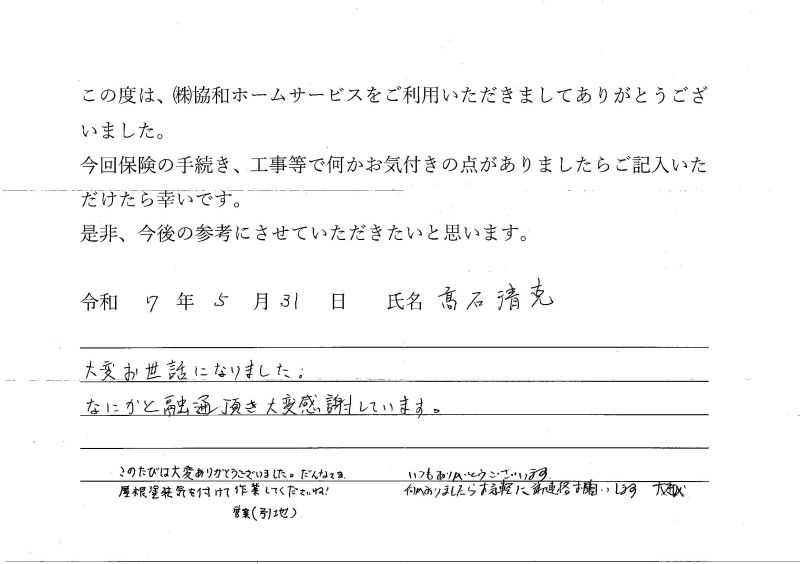 この度は、㈱協和ホームサービスをご利用いただきましてありがとうござ
いました。
今回保険の手続き、工事等で何かお気付きの点がありましたらご記入いた
だけたら幸いです。
是非、今後の参考にさせていただきたいと思います。
令和 7 年 5 月 31 日 氏名 髙石清克
大変お世話になりました。
なにかと融通頂き大変感謝しています。
このたびは大変ありがとうございました。
屋根塗装気を付けて作業してくださいね!
営業(引地)
いつもありがとうございます
何かありましたらお気軽に御連絡お願いします